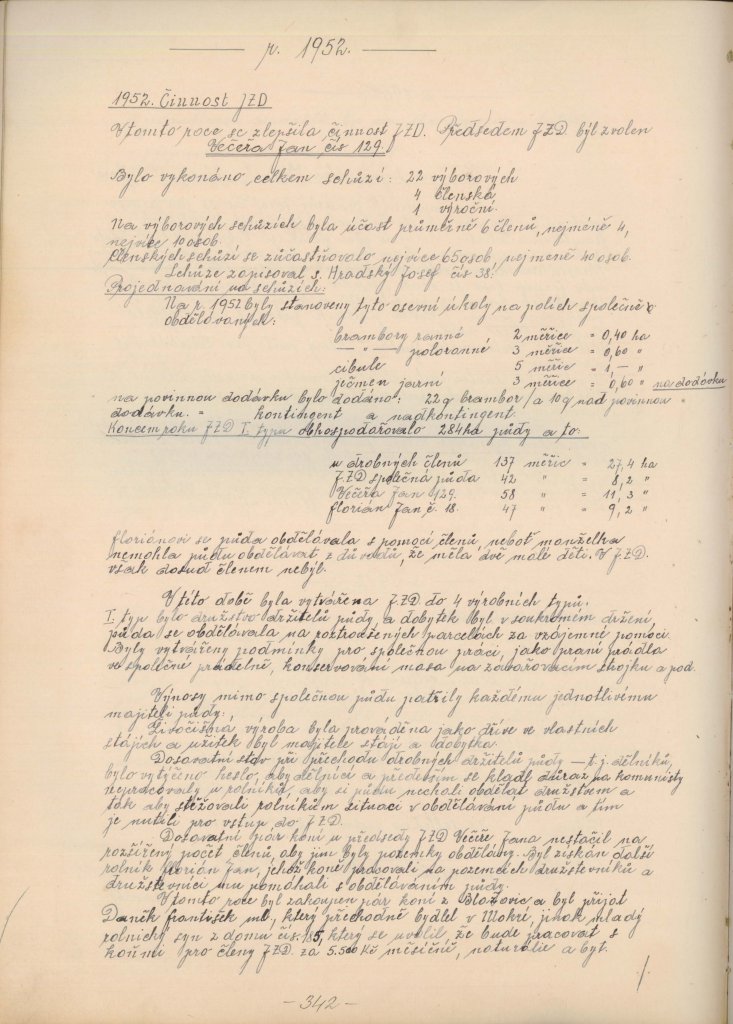 r. 1952.
1952. Činnost JZD
V tomto roce se zlepšila činnost JZD. Předsedem JZD. býl zvolen
Večeřa Jan čís 129.
Bylo vykonáno celkem schůzí: 22 výborových
4 členská
1 výroční.
Na výborových schůzích byla účast průměrně 6 členů, nejméně 4,
nejvíce 10 osob.
Členských schůzí se zúčastňovalo nejvíce 65 osob, nejméně 40 osob.
Schůze zapisoval s. Hradský Josef čís 38:
Projednávání na schůzích:
Na r. 1952 byly stanoveny tyto osevní úkoly na polích společně
obdělávaných:
brambory ranné 2 měřice = 0,40 ha
— " — poloranné 3 měřice = 0,60 "
cibule 5 měřic = 1,— "
ječmen jarní 3 měřice = 0,60 " na dodávku
na povinnou dodávku bylo dodáno: 22 q brambor / a 10 q nad povinnou "
dodávku. = kontingent a nadkontingent.
Koncem roku JZD I. typu obhospodařovalo 284 ha půdy a to:
u drobných členů 137 měřic = 27,4 ha
JZD společná půda 42 " = 8,2 "
Večeřa Jan 129. 58 " = 11,3 "
Florián Jan č. 18. 47 " = 9,2 "
Floriánovi se půda obdělávala s pomocí členů, neboť manželka
nemohla půdu obdělávat z důvodů, že měla dvě malé děti. V JZD.
však dosud členem nebýl.
V této době byla vytvářena JZD do 4 výrobních typů:
I. typ bylo družstvo držitelů půdy, a dobytek býl v soukromém držení,
půda se obdělávala na roztroušených parcelách za vzájemné pomoci.
Byly vytvářeny podmínky pro společnou práci, jako praní prádla
ve společné prádelně, konservování masa na zavařovacím strojku a pod.
Výnosy mimo společnou půdu patřily každému jednotlivému
majiteli půdy.
Živočišná výroba byla prováděna jako dříve ve vlastních
stájích a užitek byl majitele stájí a dobytka.
Dosavatní stav při přechodu drobných držitelů půdy – t.j. dělníků,
bylo vytýčeno heslo, aby dělníci a především se kladl důraz na komunisty
nepracovaly u rolníků, aby si půdu nechali obdělat družstvem a
tak aby stěžovali rolníkům situaci v obdělávání půdu a tím
je nutili pro vstup do JZD.
Dosavatní pár koní u předsedy JZD Večeře Jana nestačil na
rozšířený počet členů, aby jim byly pozemky obdělány. Byl získán další
rolník Florián Jan, jehož koně pracovali na pozemcích družstevníků a
družstevníci mu pomáhali s obděláváním půdy.
V tomto roce byl zakoupen pár koní z Blažovic a byl přijat
Daněk František ml., který přechodně bydlel v Mokré, jinak mladý
rolnický syn z domu čís. 185, který se uvolil, že bude pracovat s
koňmi pro členy JZD. za 5.500 Kč měsíčně, naturálie a byt.
– 342 –